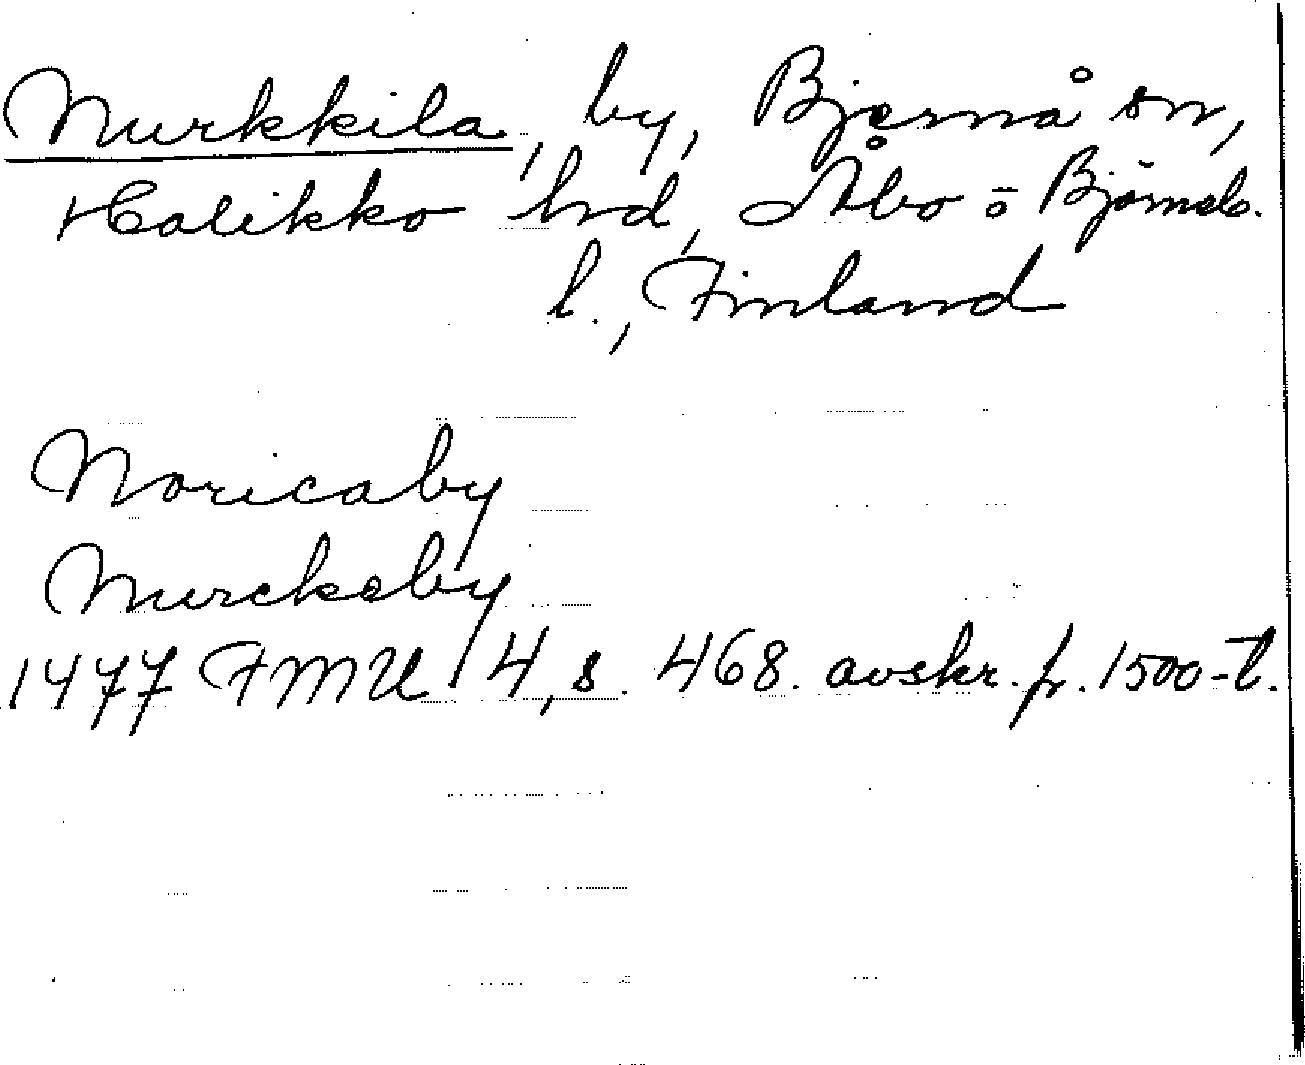 Nurkkila, by, Bjernå sn,
Halikko hrd, Åbo o Björneb.
l., Finland
Noricaby
Nurckaby
1477 FMU 4, s. 468. avskr. fr. 1500-t.